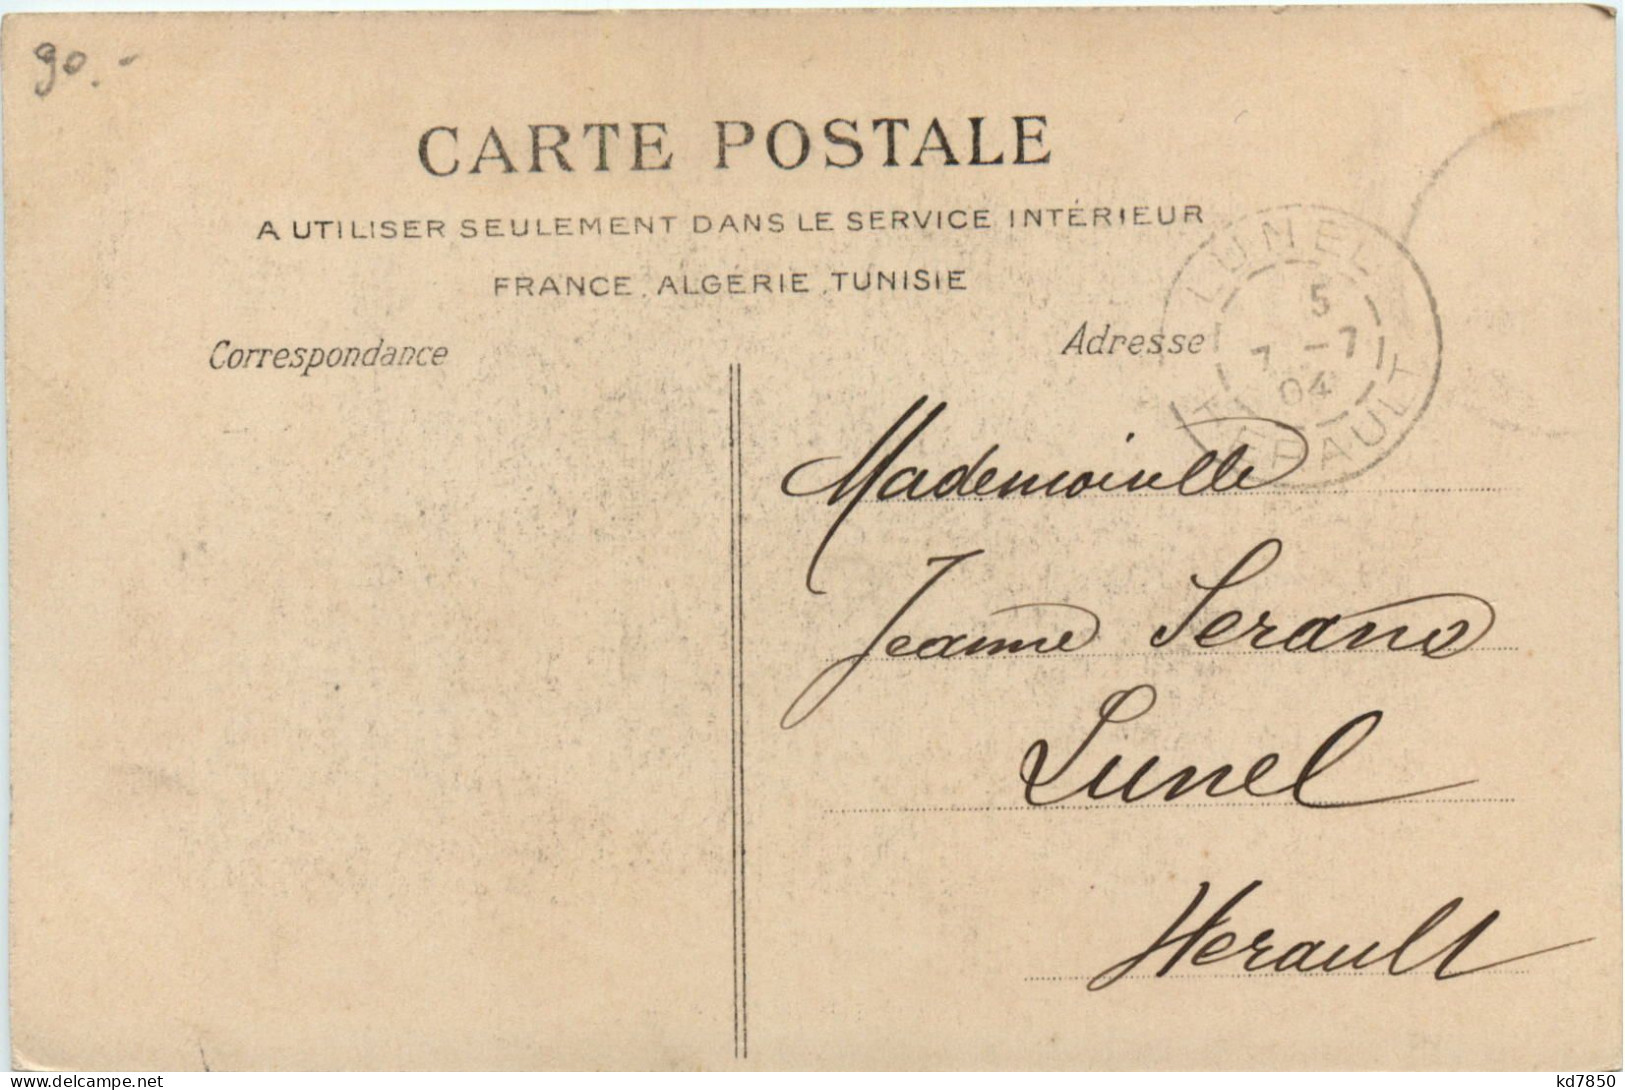 90.-
CARTE POSTALE
A UTILISER SEULEMENT DANS LE SERVICE INTÉRIEUR
FRANCE, ALGÉRIE, TUNISIE
Correspondance
Adresse
LUNEL
5
7 -7
04
HERAULT
Mademoiselle
Jeanne Serano
Lunel
Herault
delcampe.net
kd7850